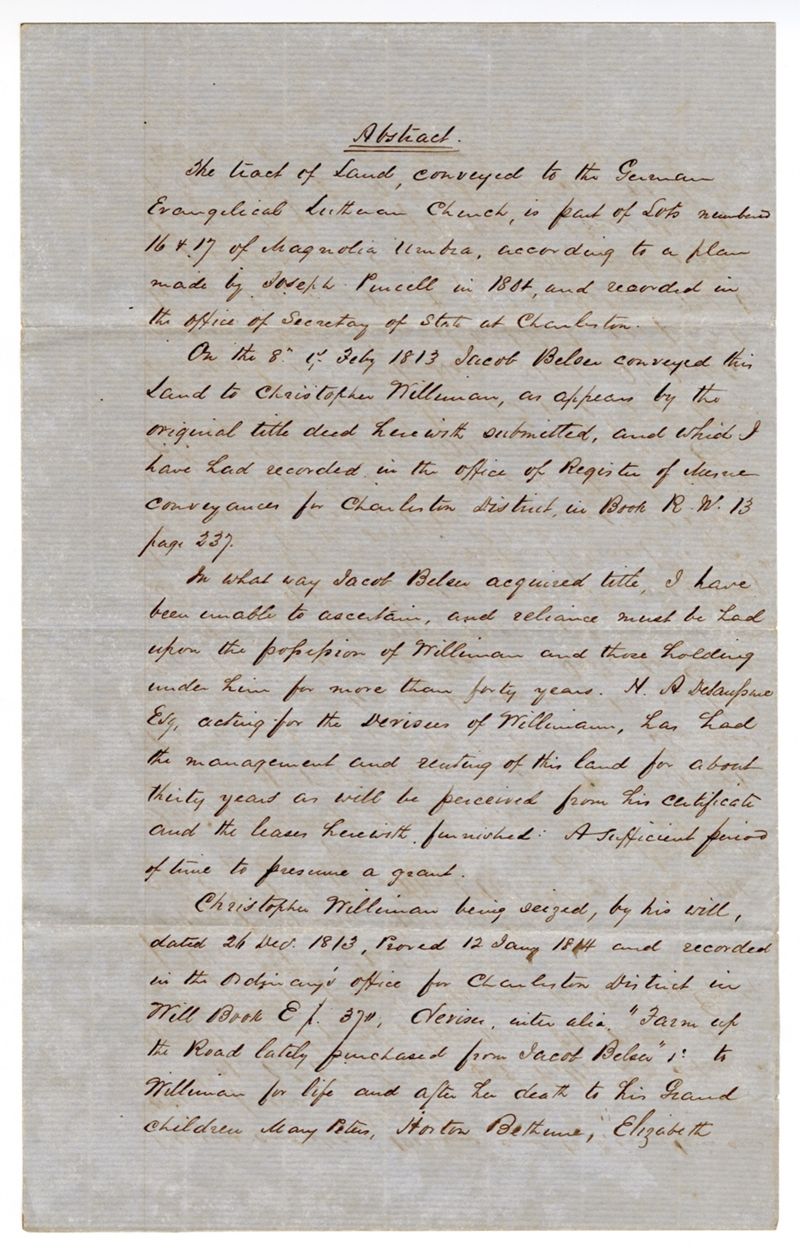 Abstract.
The tract of Land, conveyed to the German
Evangelical Lutheran Church, is part of Lots numbered
16 & 17 of Magnolia Umbra, according to a plan
made by Joseph Purcell in 180 , and recorded in
the office of Secretary of State at Charleston.
On the 8th Feby 1813 Jacob Belser conveyed this
Land to Christopher Williman, as appears by the
original title deed herewith submitted, and which I
have had recorded in the office of Register of Mesne
conveyances for Charleston District, in Book R. W. 13
page 237.
In what way Jacob Belser acquired title, I have
been unable to ascertain, and reliance must be had
upon the possession of Williman and those holding
under him for more than forty years. H. A DeSaussure
Esq, acting for the Devisees of Willimann, has had
the management and renting of this land for about
thirty years as will be perceived from his certificate
and the leases herewith furnished: A sufficient period
of time to presume a grant.
Christopher Williman being seized, by his will,
dated 26 Decr. 1813, Proved 12 Jany 1814 and recorded
in the Ordinary's office for Charleston District in
Will Book E p. 37 , Devises, inter alia, "Farm up
the Road lately purchased from Jacob Belser" to
Williman for life and after her death to his Grand
children Mary Peters, Horton Bethune, Elizabeth